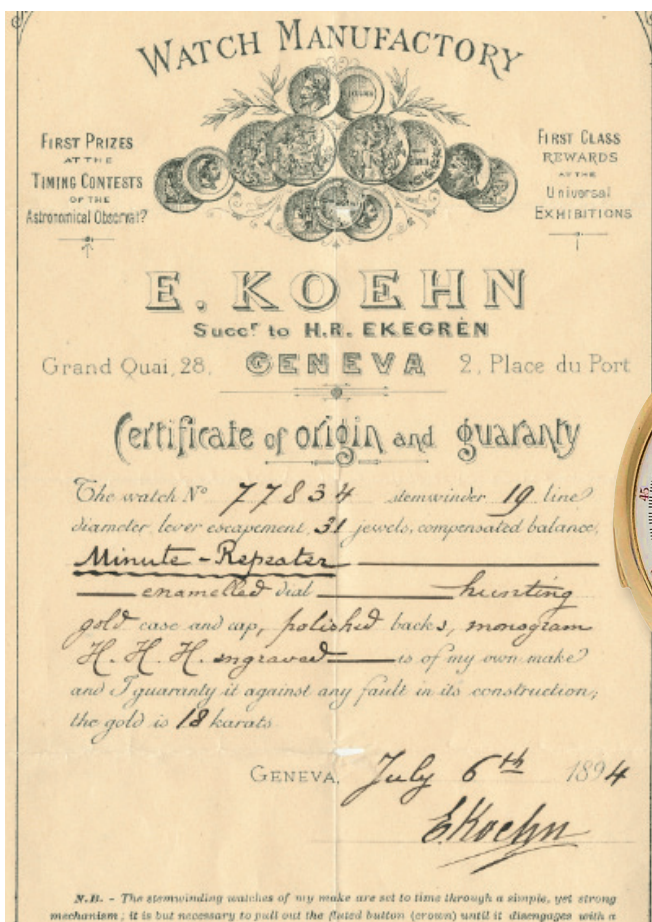 WATCH MANUFACTORY
FIRST PRIZES
AT THE
TIMING CONTESTS
OF THE
Astronomical Observat?
FIRST CLASS
REWARDS
AT THE
Universal
EXHIBITIONS
E. KOEHN
Succr to H.R. EKEGRÈN
Grand Quai, 28, GENEVA 2, Place du Port
Certificate of origin and guaranty
The watch No 77834 stemwinder 19 line
diameter, lever escapement, 31 jewels, compensated balance,
Minute-Repeater
enamelled dial hunting
gold case and cap, polished backs, monogram
H. H. H. engraved is of my own make
and I guaranty it against any fault in its construction;
the gold is 18 karats
GENEVA, July 6th 1894
EKoehn
N.B. - The stemwinding watches of my make are set to time through a simple, yet strong
mechanism; it is but necessary to pull out the fluted button (crown) until it disengages with a
45